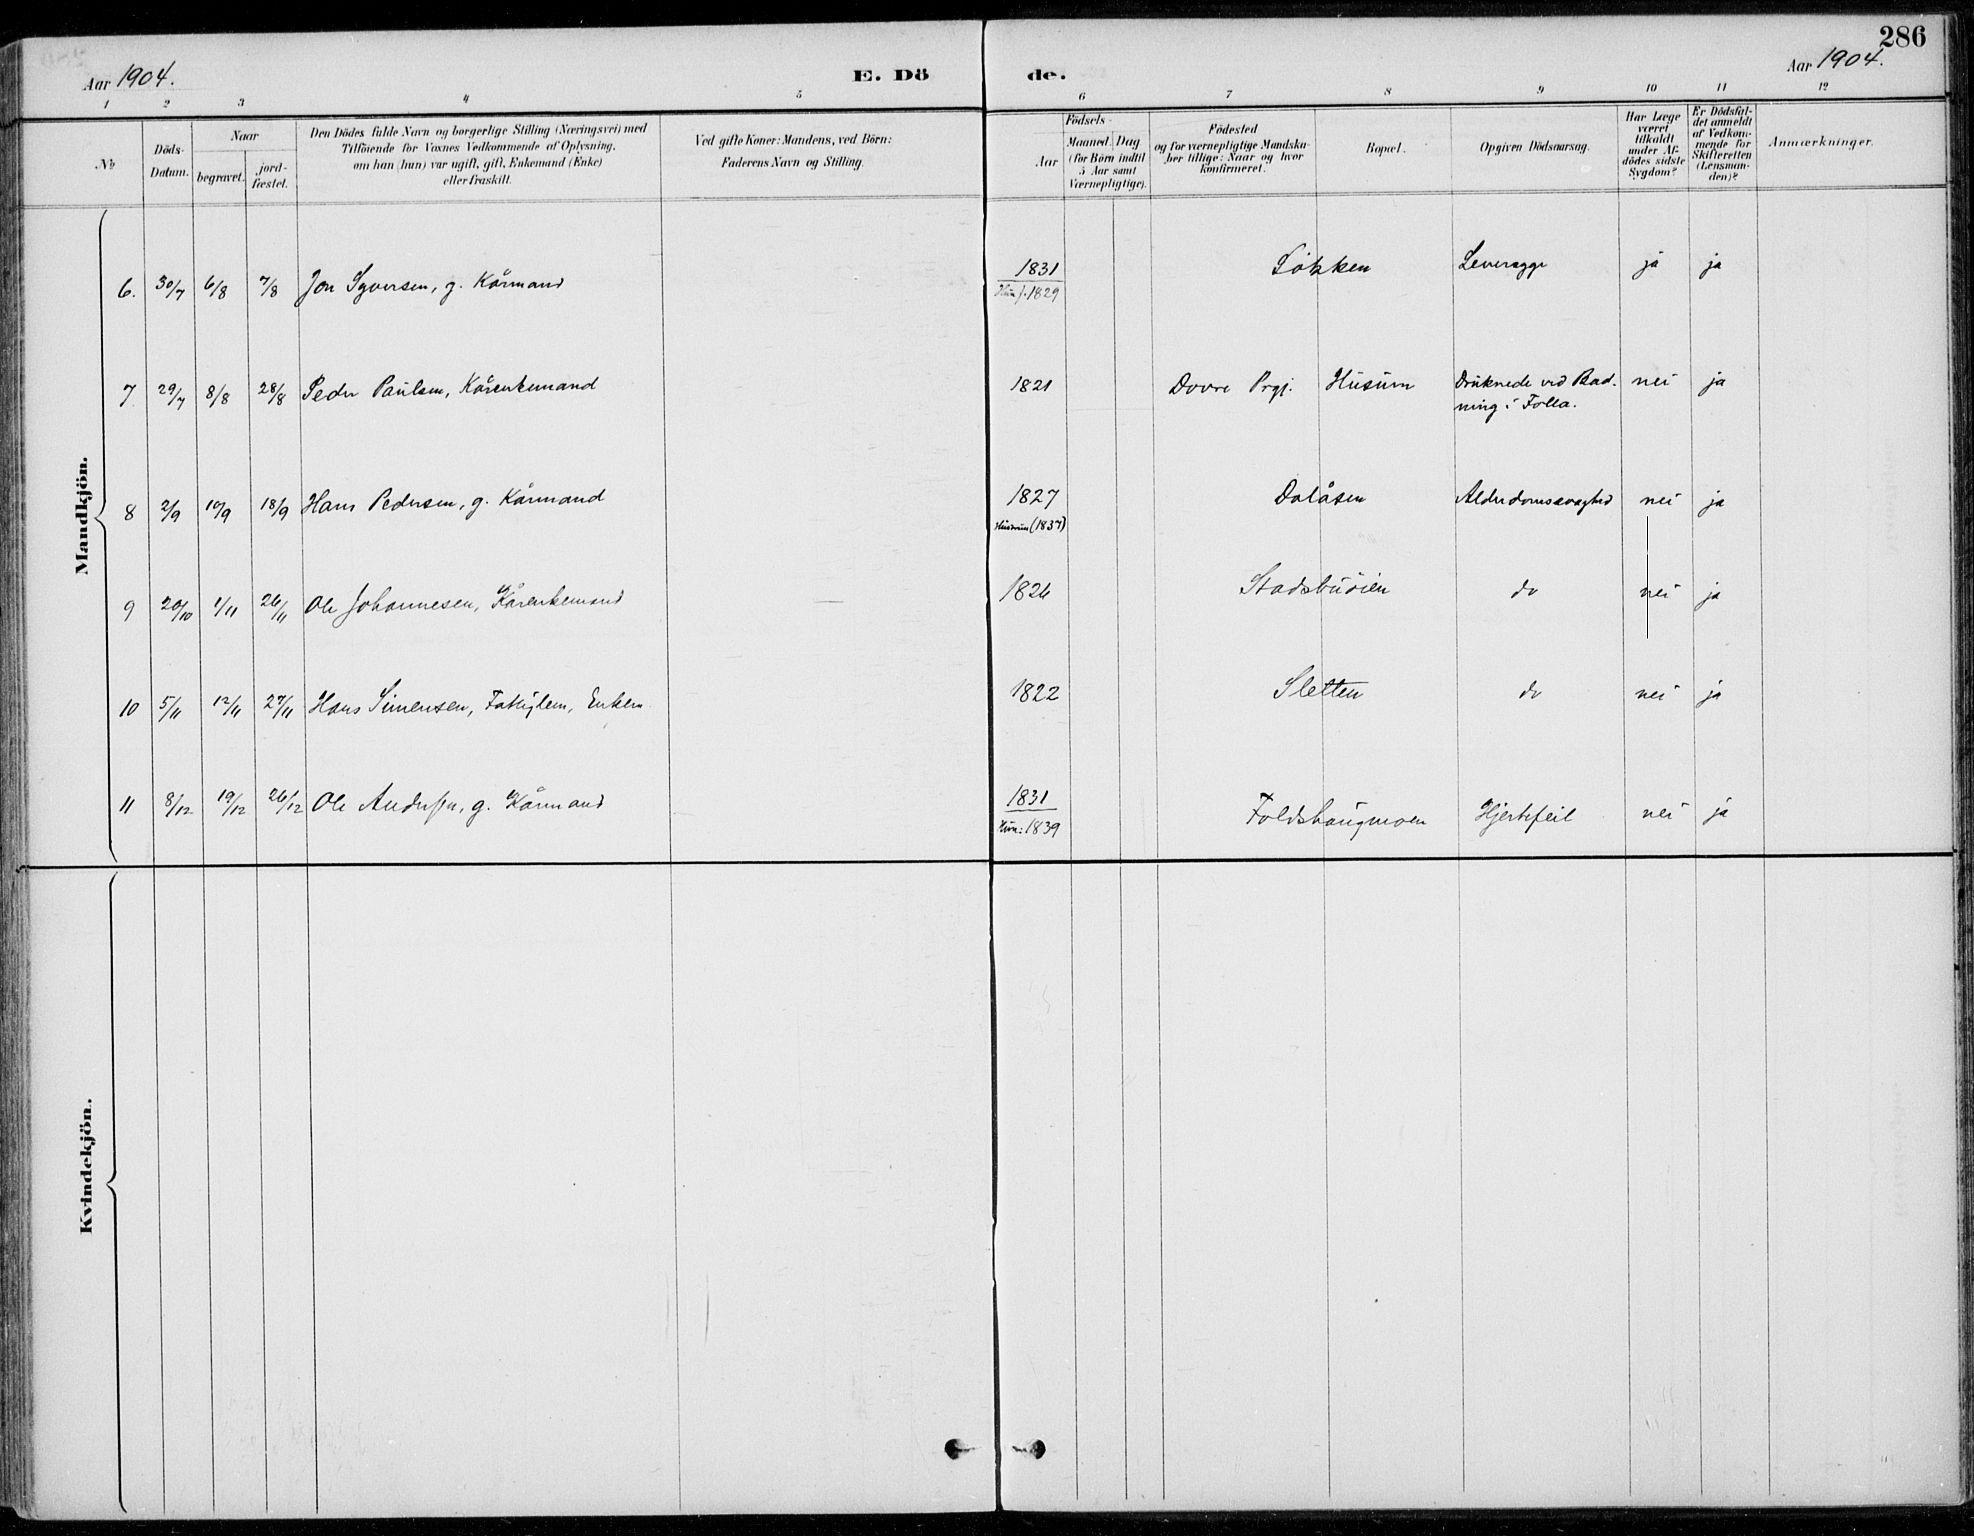 286
Aar 1904.
E. Dö
de.
Aar 1904.
1 2 3 4 5 6 7 8 9 10 11 12
№
Döds-
Datum.
Naar
begravet.
jord-
fæstet.
Den Dödes fulde Navn og borgerlige Stilling (Næringsvei) med
Tilföiende for Voxnes Vedkommende af Oplysning,
om han (hun) var ugift, gift, Enkemand (Enke)
eller fraskilt.
Ved gifte Koner: Mandens, ved Börn:
Faderens Navn og Stilling.
Födsels-
Aar
Maaned.
Dag
(for Börn indtil
5 Aar samt
Værnepligtige).
Födested
og for værnepligtige Mandska-
ber tillige: Naar og hvor
konfirmeret.
Bopæl.
Opgiven Dödsaarsag.
Har Læge
været
tilkaldt
under Af-
dödes sidste
Sygdom?
Er Dödsfal-
det anmeldt
af Vedkom-
mende for
Skifteretten
(Lensman-
den)?
Anmærkninger.
Mandkjön.
6. 30/7 6/8 7/8 Jon Syversen, g. Kårmand 1831 Løkken ja ja
1829
7. 29/7 8/8 28/8 Peder Paulsen, Kårenkemand 1821 Dovre Prgj. Husum Druknede vid Bad- nei ja
ning i Folla.
8 2/9 10/9 18/9 Hans Pedersen, g. Kårmand 1827 Dalåsen Alderdomssvaghed nei ja
Hustrun (1837)
9 20/10 1/11 26/11 Ole Johannesen, Kårenkemand — 1826 Stadsbuøien do nei ja
10 5/11 12/11 27/11 Hans Simensen, Fattiglem, Enkem. 1822 Sletten do nei ja
11 8/12 19/12 26/12 Ole Andersen, g. Kårmand 1831 Foldshaugmoen Hjertefeil nei ja
Hun: 1839
Kvindekjön.